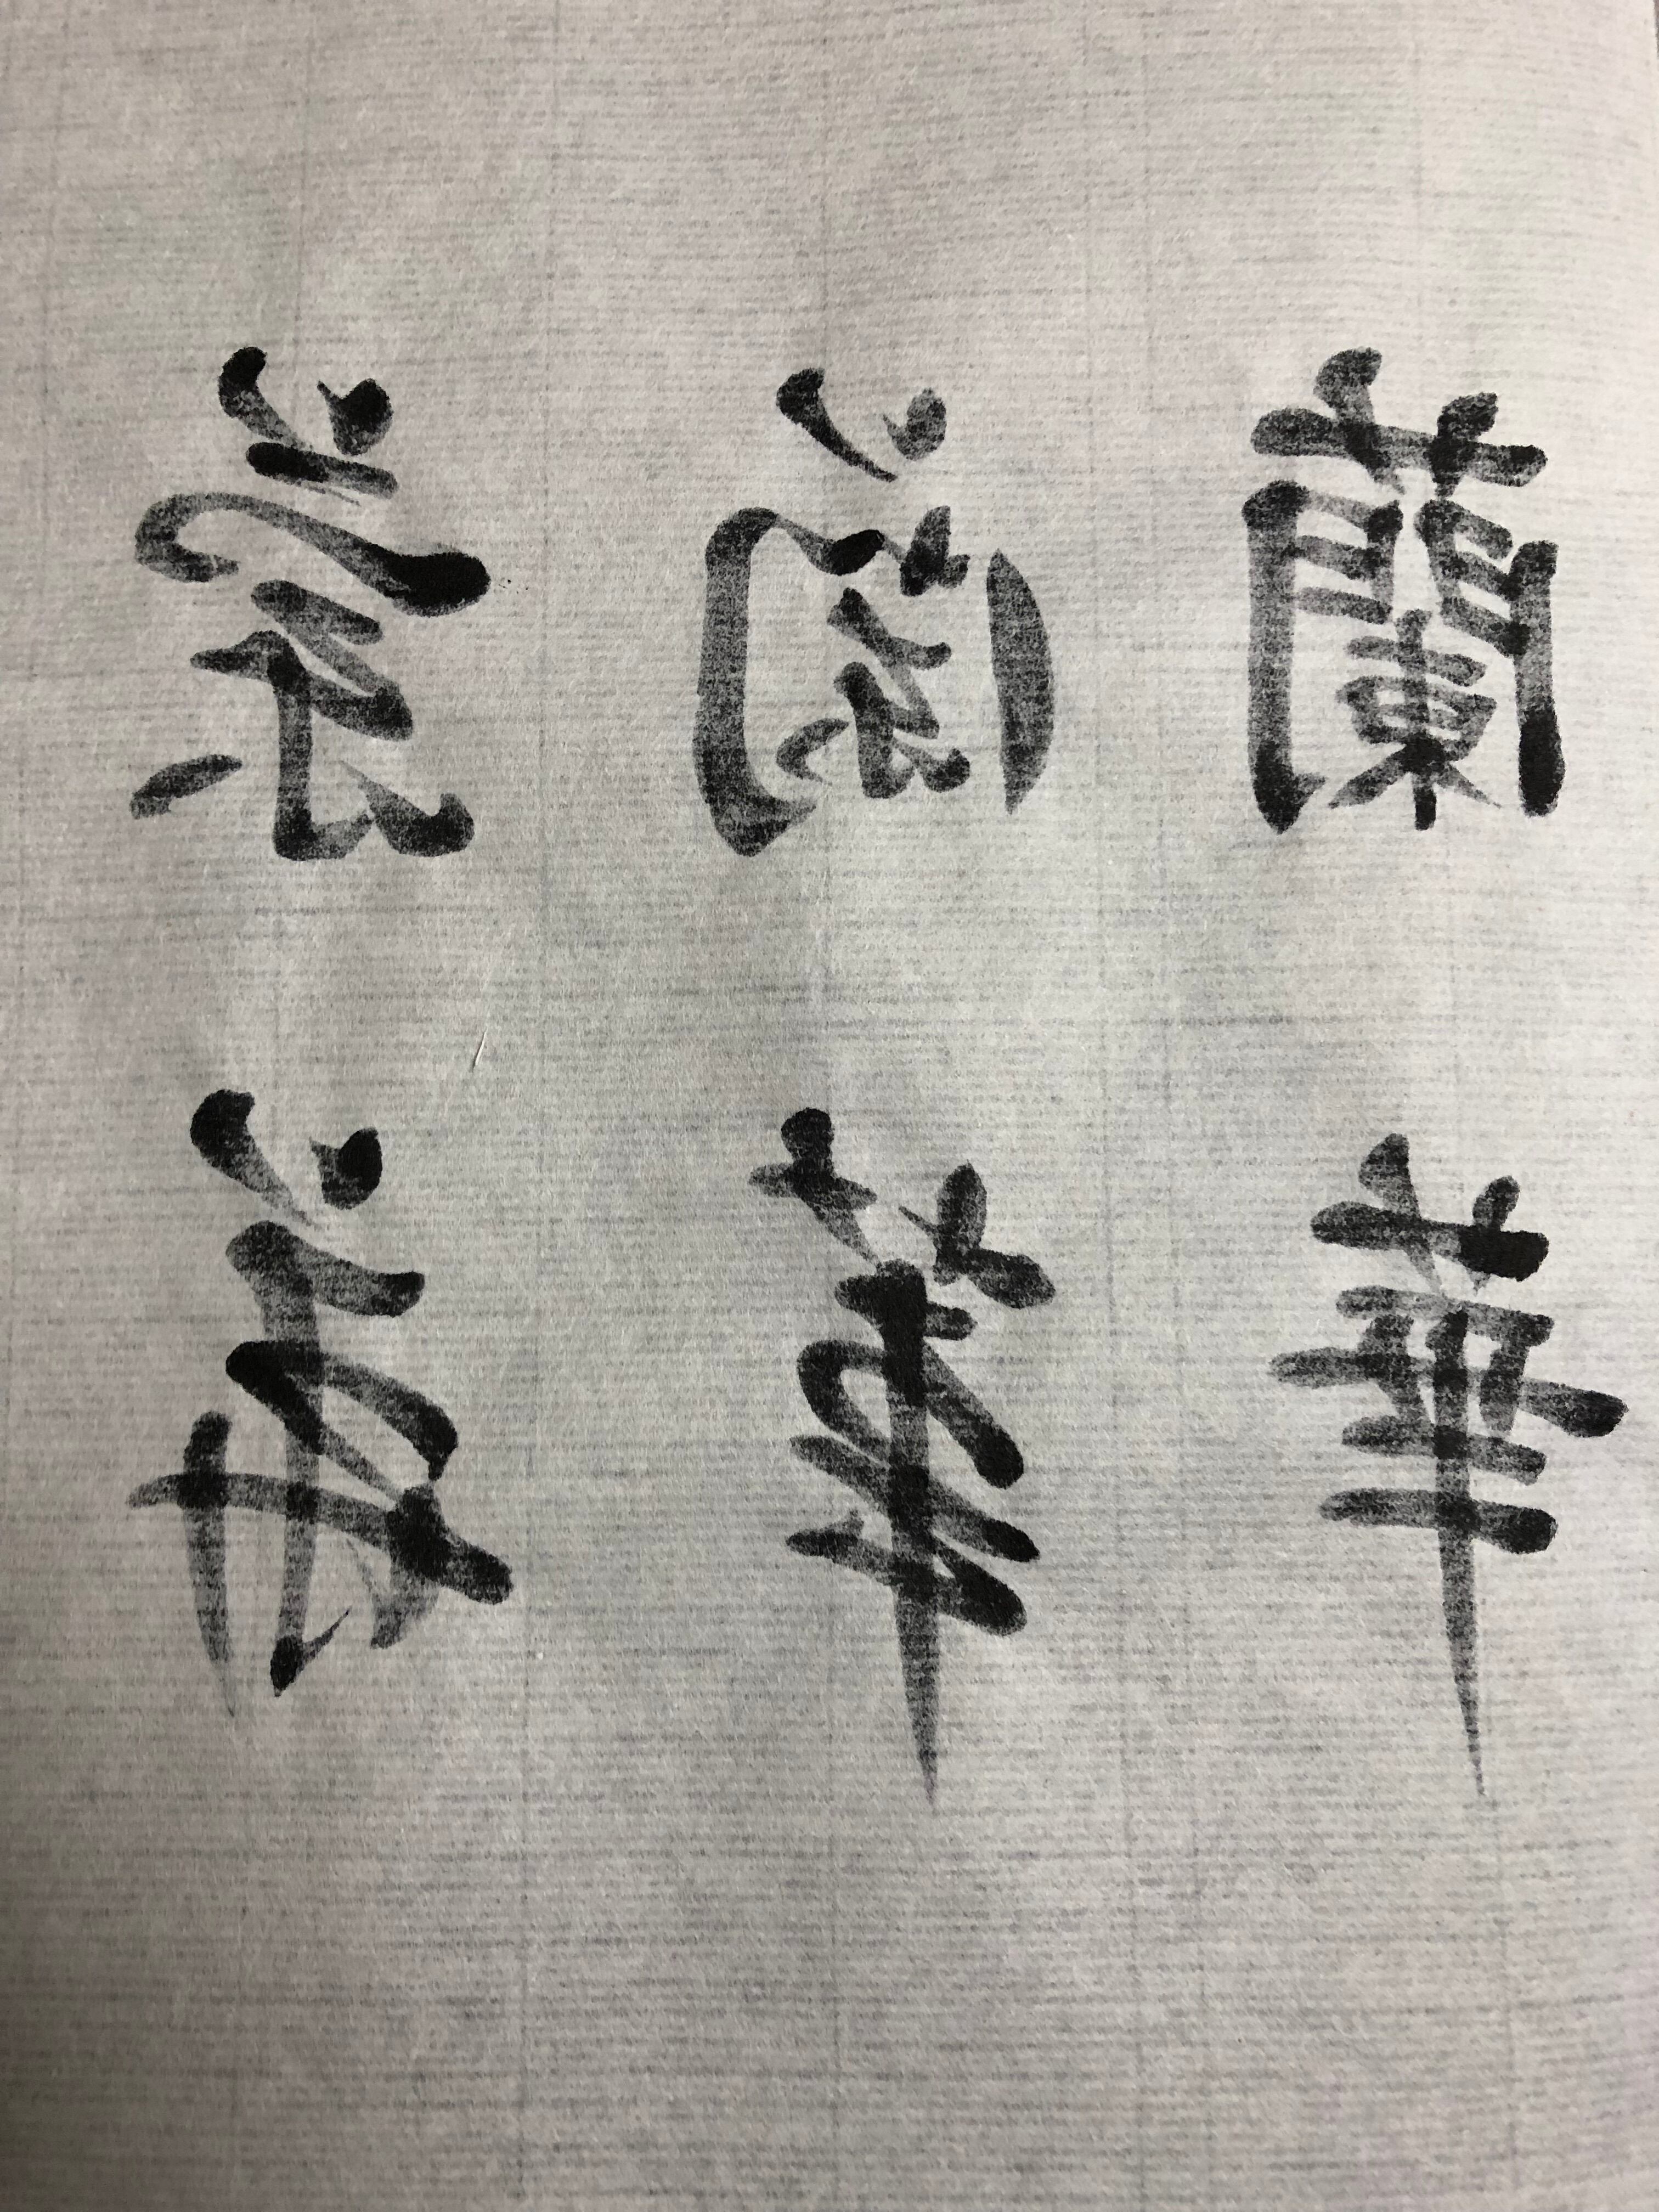 蘭華
蘭華
蘭華